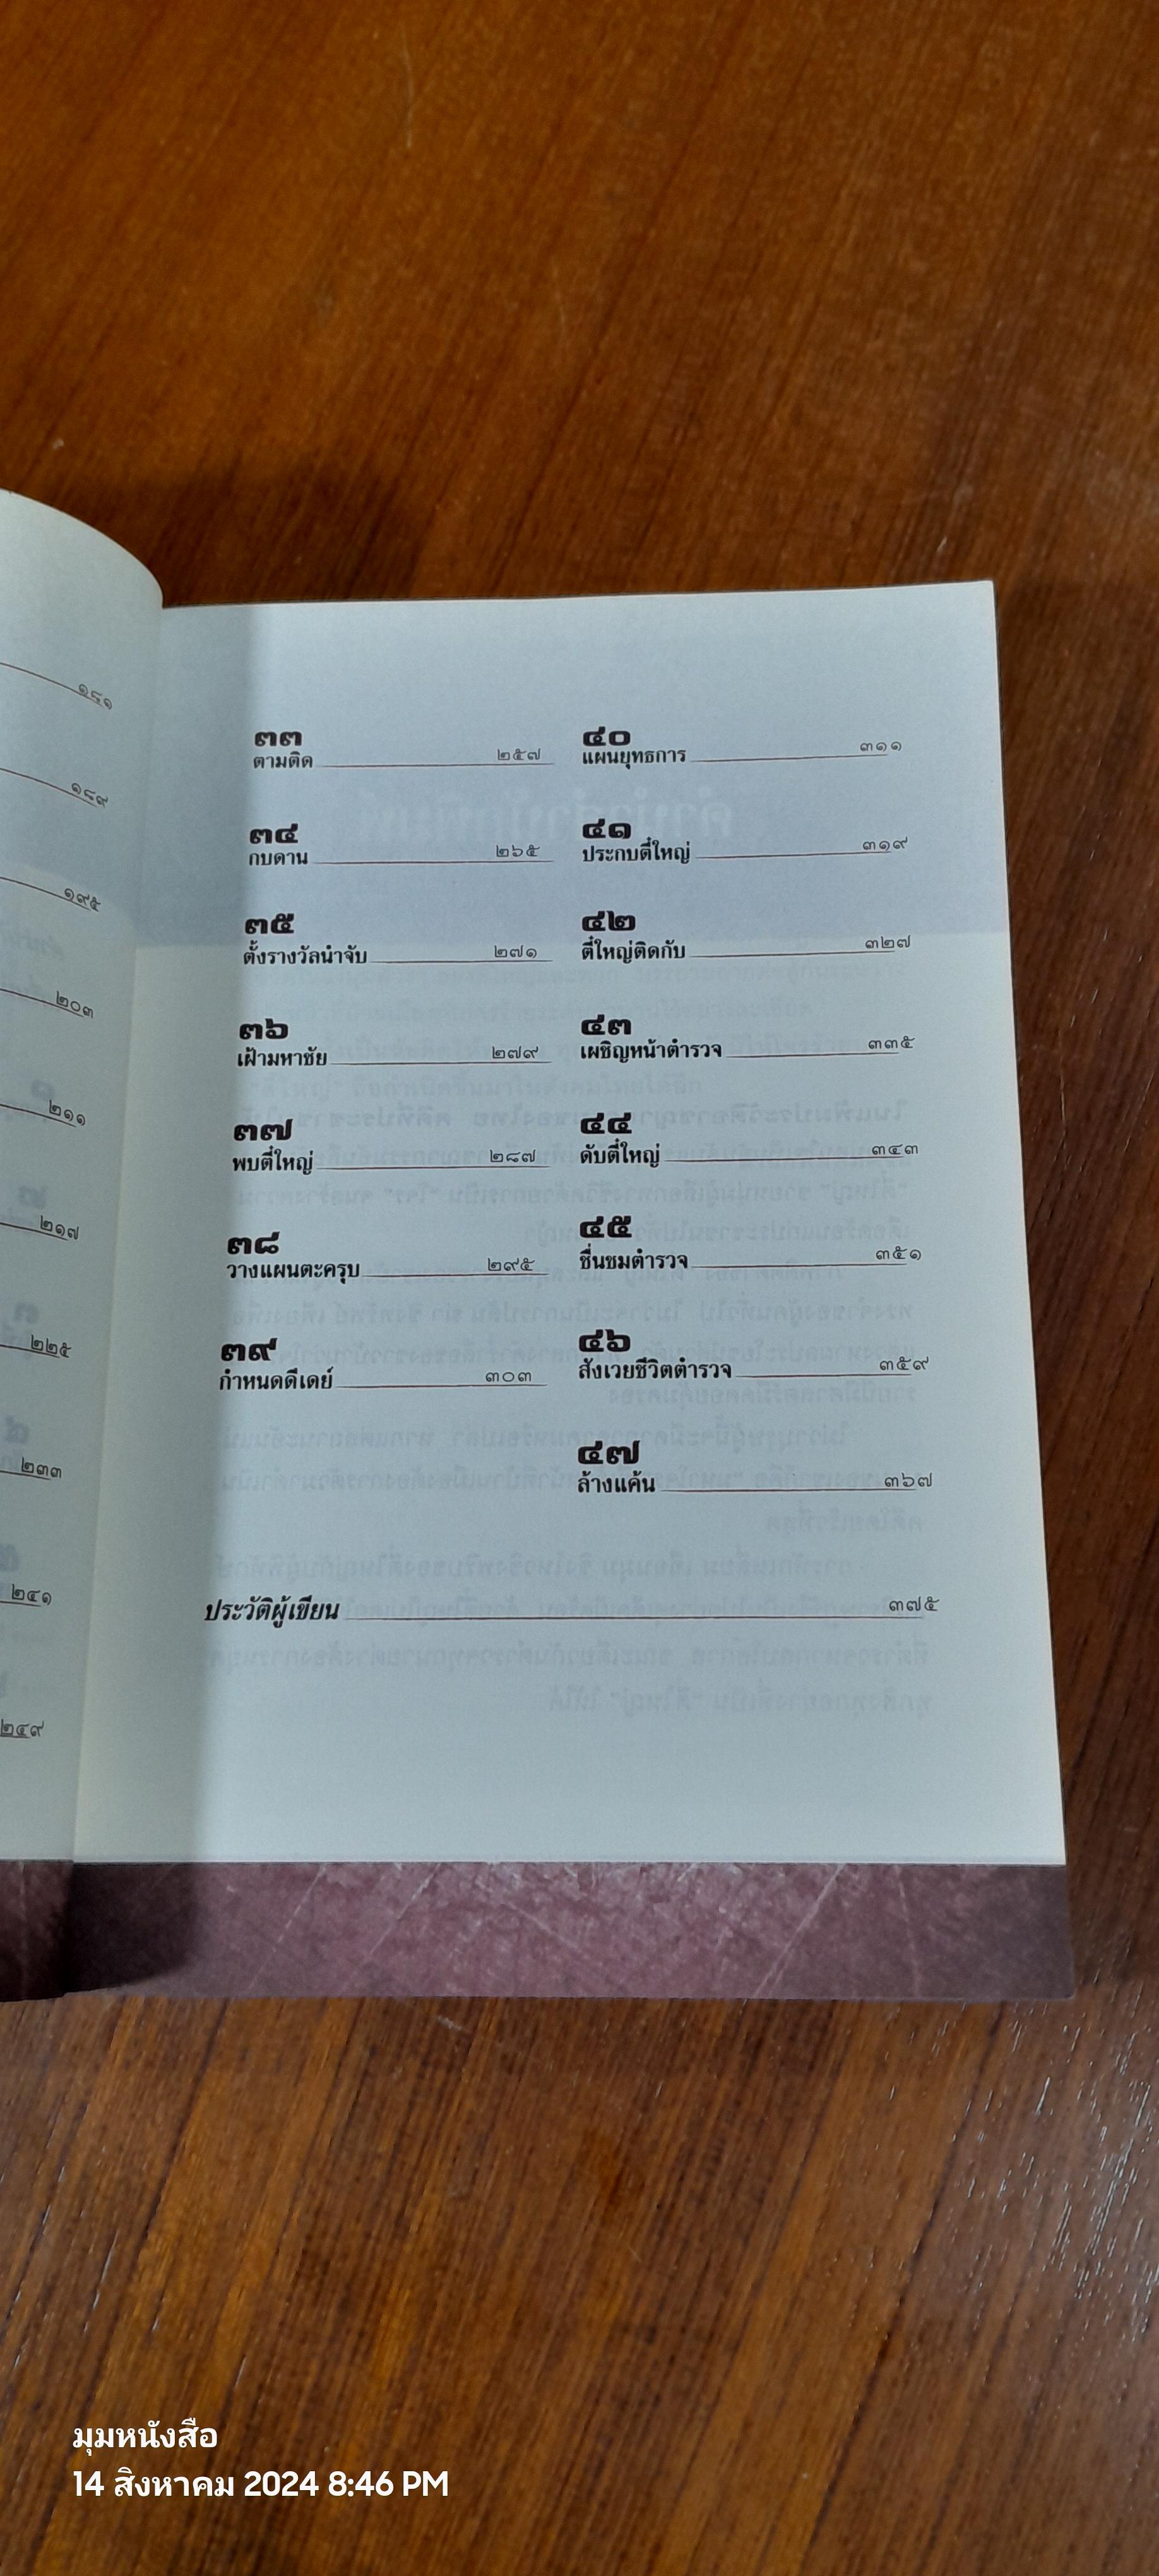 ๑๘๑
๑๘๙
๑๙๕
๒๐๓
๒๑๑
๒๑๗
๒๒๕
๒๓๓
๒๔๑
๒๔๙
๓๓
ตามติด ๒๕๗
๓๔
กบดาน ๒๖๕
๓๕
ตั้งรางวัลนำจับ ๒๗๑
๓๖
เฝ้ามหาชัย ๒๗๙
๓๗
พบตี๋ใหญ่ ๒๘๗
๓๘
วางแผนตะครุบ ๒๙๕
๓๙
กำหนดดีเดย์ ๓๐๓
๔๐
แผนยุทธการ ๓๑๑
๔๑
ประกบตี๋ใหญ่ ๓๑๙
๔๒
ตี๋ใหญ่ติดกับ ๓๒๗
๔๓
เผชิญหน้าตำรวจ ๓๓๕
๔๔
ดับตี๋ใหญ่ ๓๔๓
๔๕
ชื่นชมตำรวจ ๓๕๑
๔๖
สังเวยชีวิตตำรวจ ๓๕๙
๔๗
ล้างแค้น ๓๖๗
ประวัติผู้เขียน ๓๗๕
มุมหนังสือ
14 สิงหาคม 2024 8:46 PM